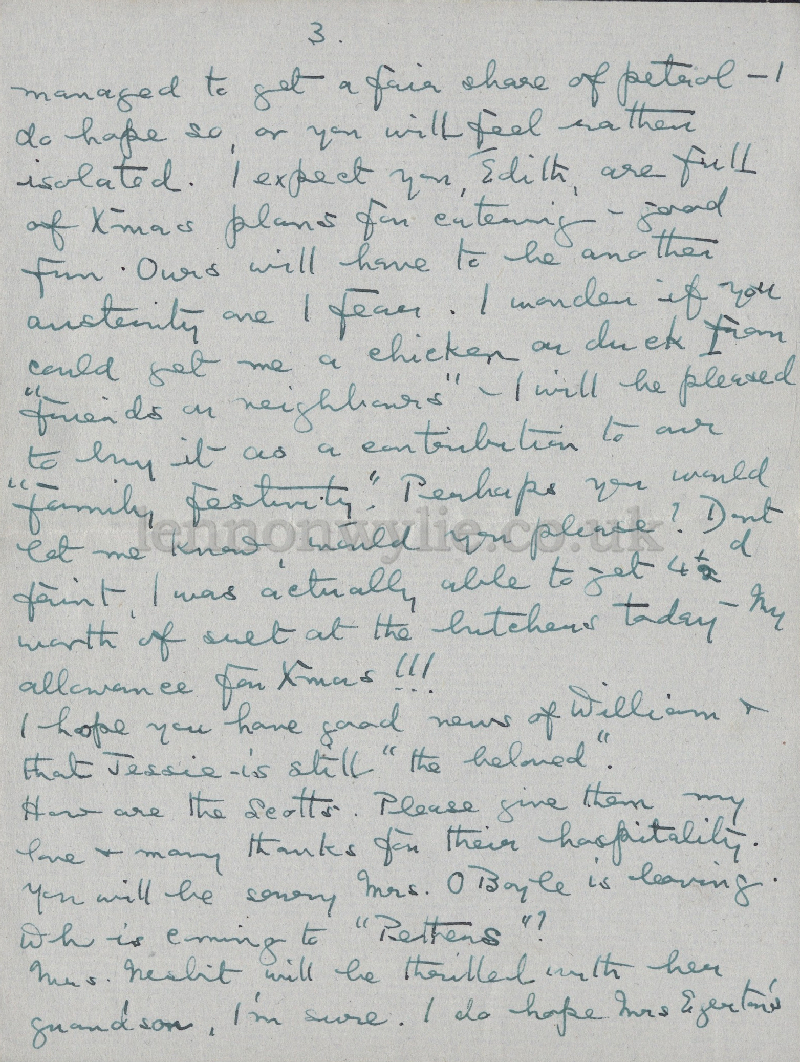 3.
managed to get a fair share of petrol - I
do hope so, or you will feel rather
isolated. I expect you, Edith, are full
of Xmas plans for catering - good
fun. Ours will have to be another
austerity one I fear. I wonder if you
could get me a chicken or duck from
"friends or neighbours" - I will be pleased
to buy it as a contribution to our
"family festivity". Perhaps you would
let me know, would you please? Dont
faint, I was actually able to get 4½d
worth of suet at the butchers today - My
allowance for Xmas !!!
I hope you have good news of William &
that Jessie is still "the beloved".
How are the Scotts. Please give them my
love & many thanks for their hospitality.
You will be sorry Mrs. O'Boyle is leaving.
Wh is coming to "

"?
Mrs. Nesbit will be thrilled with her
grandson, I'm sure. I do hope Mrs Egerton's
lennonwylie.co.uk